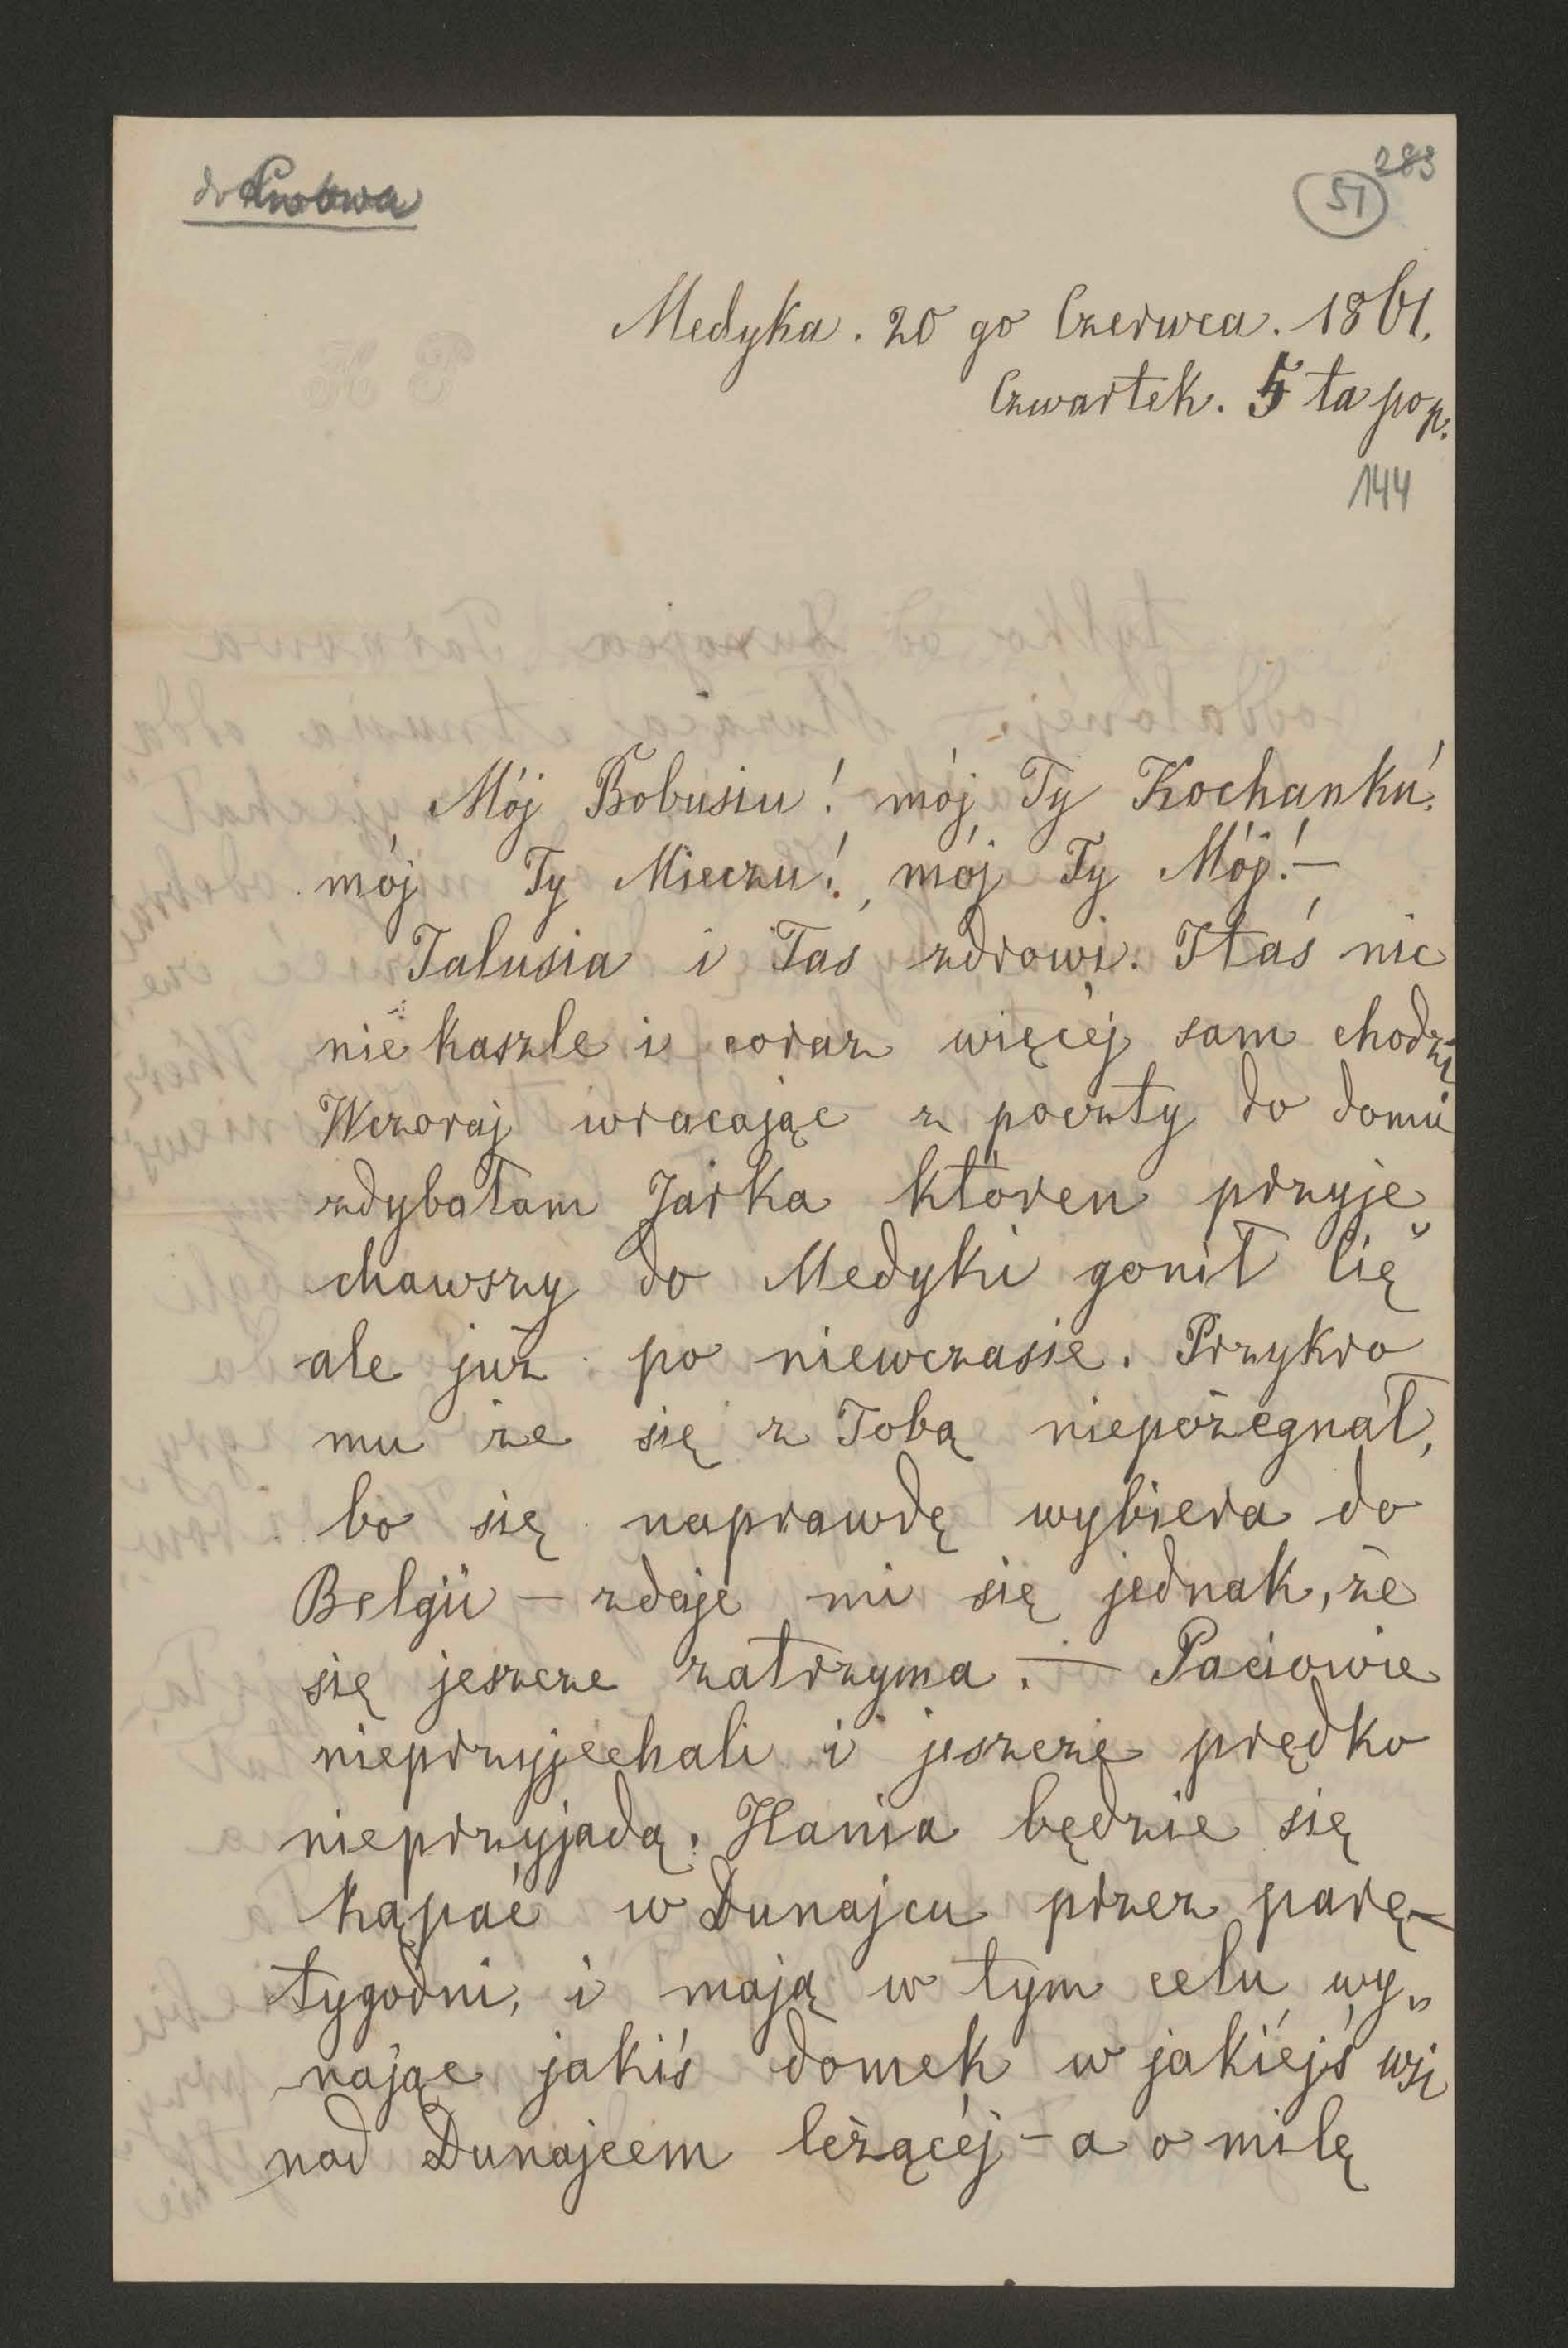 do Lwowa
283
51
Medyka. 20 go Czerwca. 1861.
Czwartek. 5 ta pop.
144
Mój Bobusiu! mój Ty Kochanku!
mój Ty Mieczu! mój Ty Mój! —
Talusia i Taś zdrowi. Staś nic
nie kaszle i coraz więcéj sam chodzi
Wczoraj wracając z poczty do domu
zdybałam Jarka któren przyje„
chawszy do Medyki gonił Cię
ale już po niewczasie. Przykro
mu że się z Tobą niepożegnał,
bo się naprawdę wybiera do
Belgii — zdaje mi się jednak, że
się jeszcze zatrzyma. — Paciowie
nieprzyjechali i jeszcze prędko
nieprzyjadą. Hania będzie się
kąpać w Dunajcu przez parę
tygodni, i mają w tym celu wy„
nająć jakiś domek w jakiéjś wsi
nad Dunajcem leżącéj — a o milę